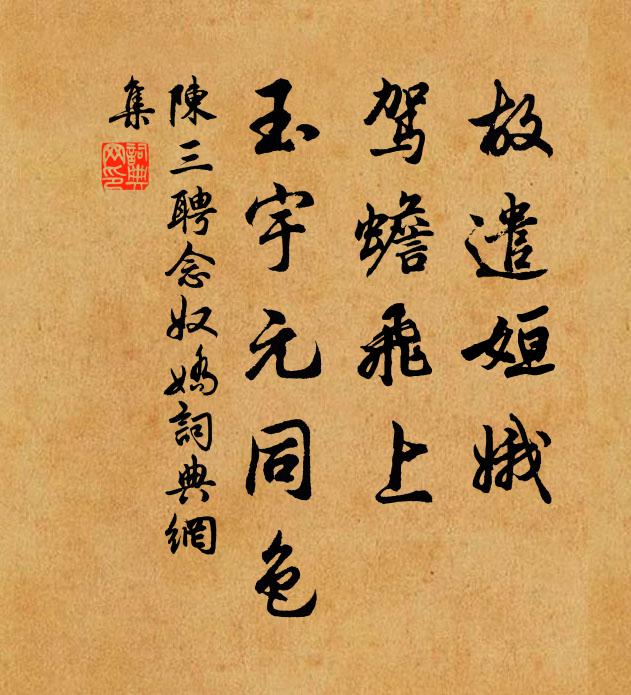 故遣姮娥
駕蟾飛上
玉宇元同色
陳三聘念奴嬌詞典網
集
詞典
网印